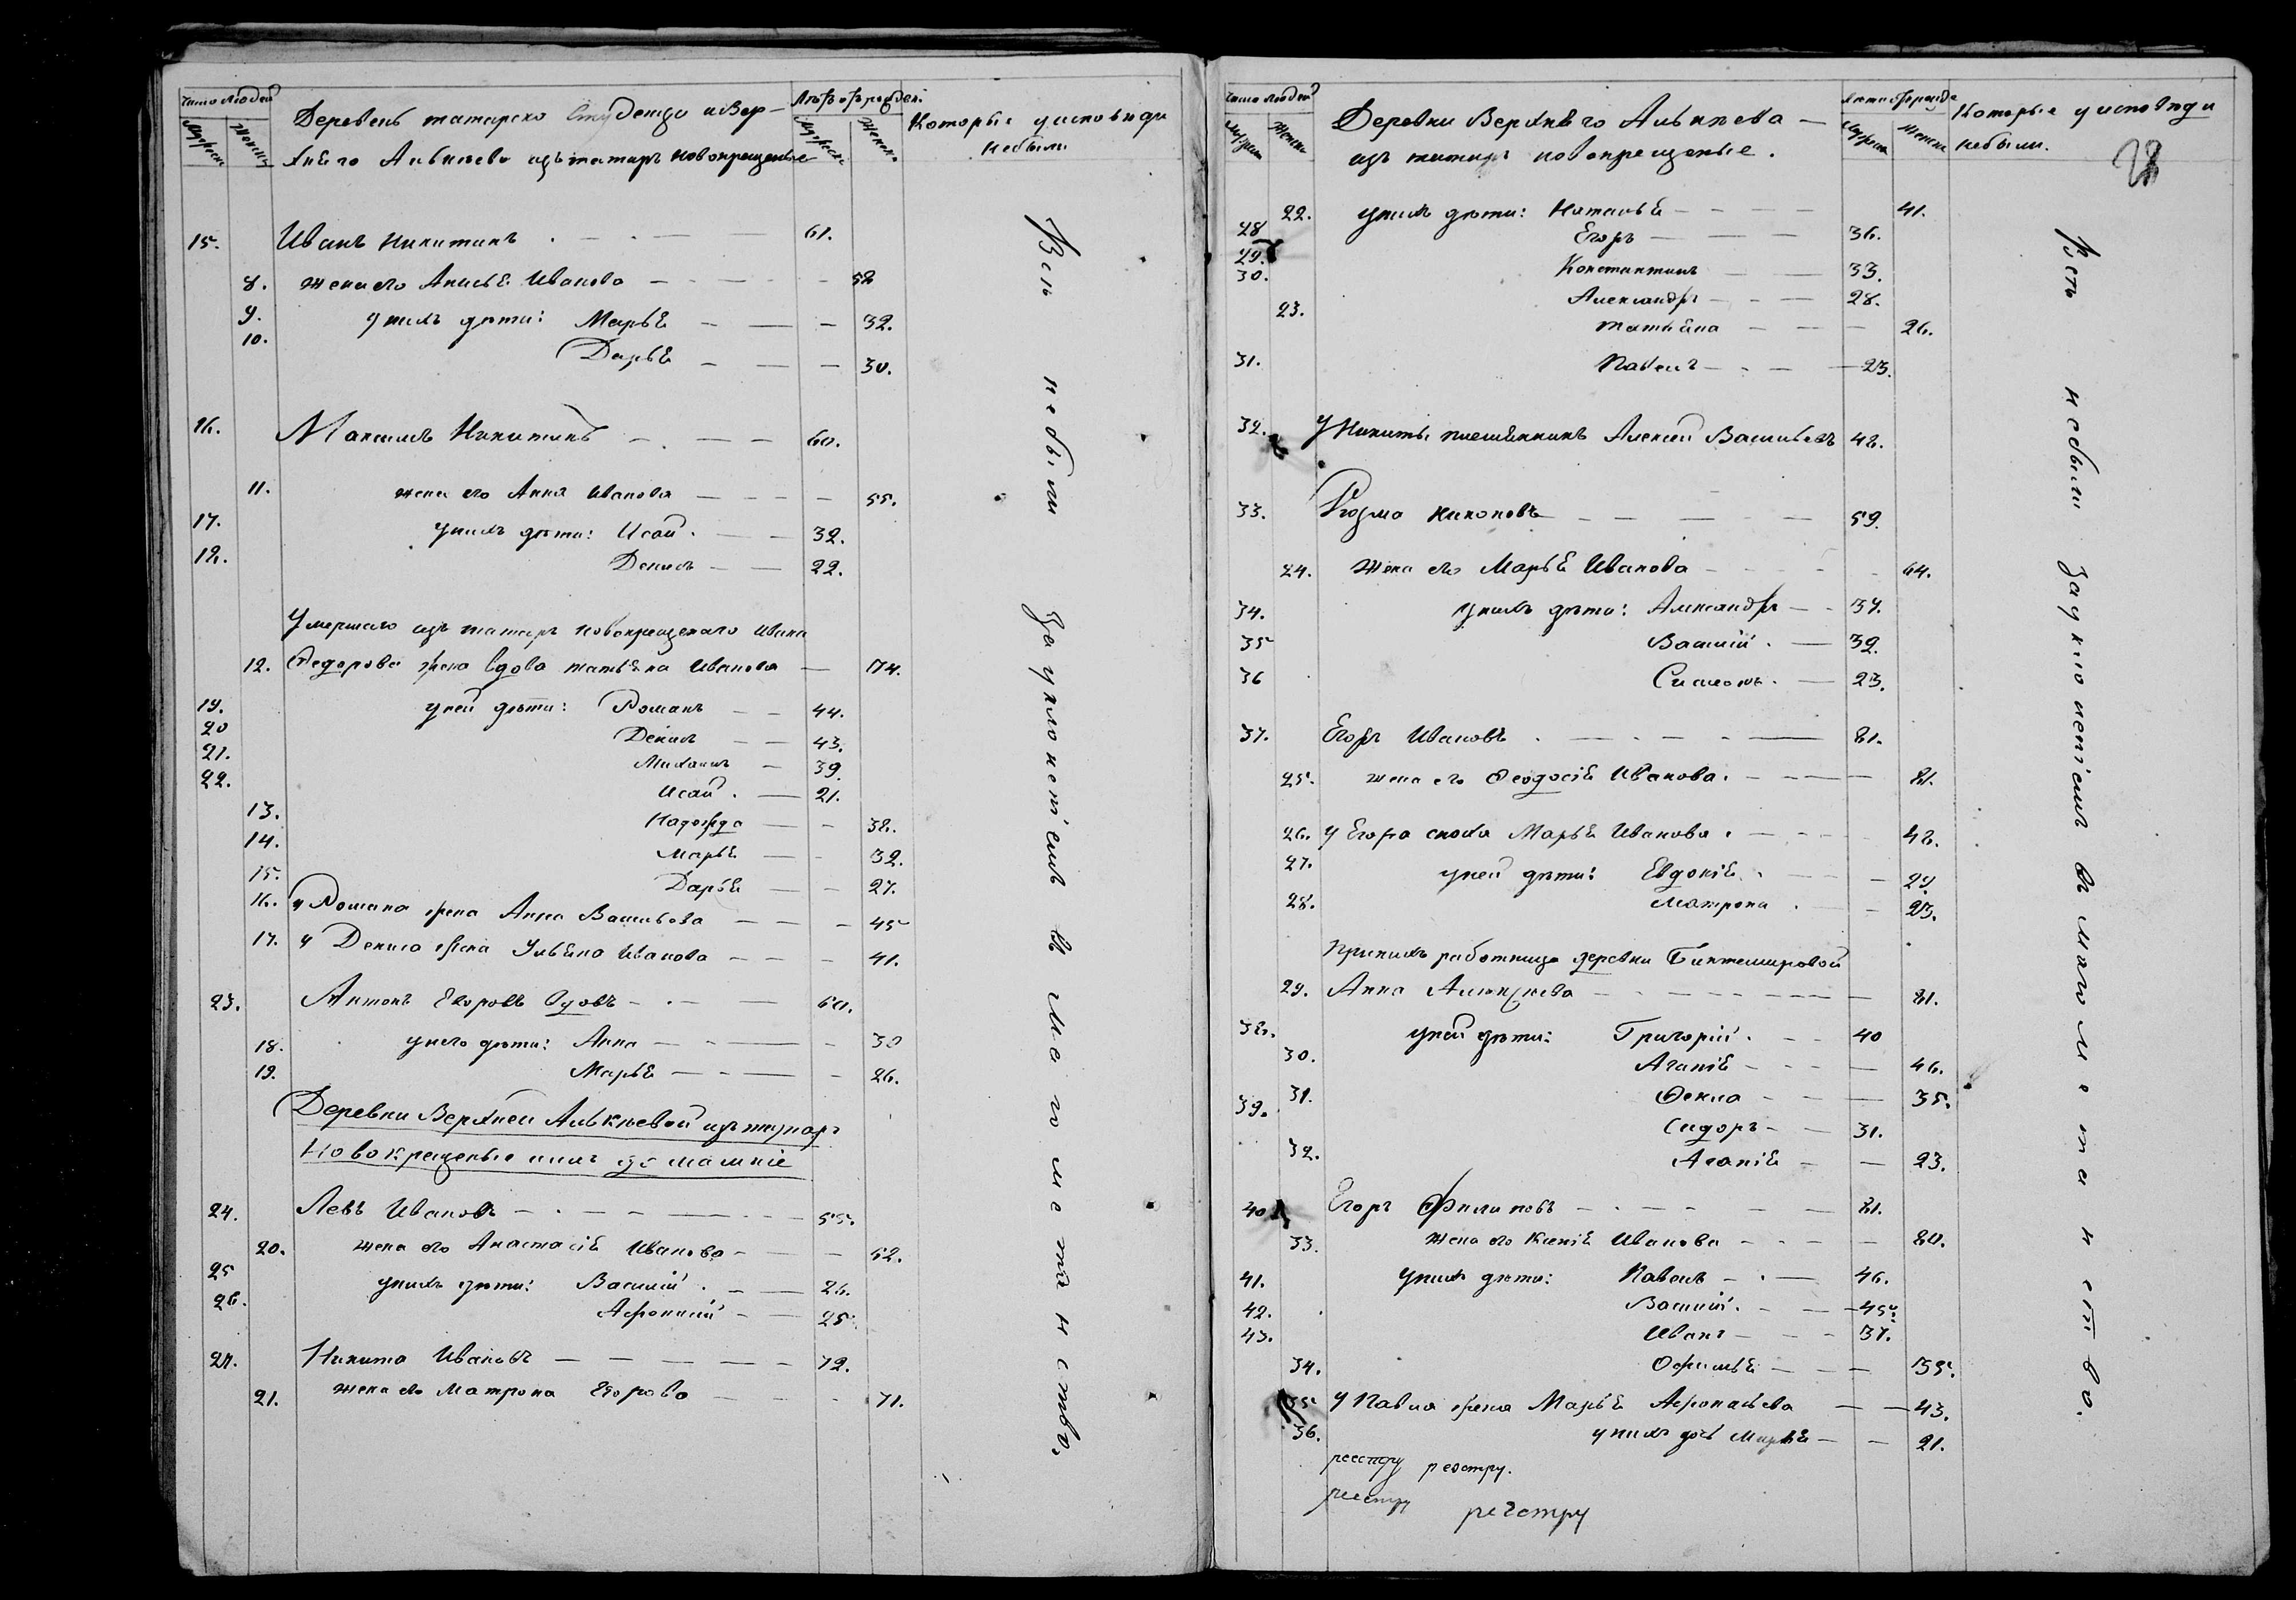 Число людей
Мужеск
Женск
Деревень татарско Студенца и Вер-
хнѣго Алькѣева изъ татаръ новокрещеные
Лѣтъ отъ рожден.
Мужеска
Женска
Которые у исповѣди
небыли
15. Иванъ Никитинъ 61.
8. жена его Анисья Иванова 58
9. у нихъ дѣти: Марья 32.
10. Дарья 30.
16. Максимъ Никитинъ 60.
11. жена его Анна Иванова 55.
17. у нихъ дѣти: Исай. 32.
18. Денисъ 22.
Умершаго изъ татаръ новокрещенаго Ивана
12. Федорова жена вдова татьяна Иванова 74.
19. у ней дѣти: Романъ 44.
20 Денисъ 43.
21. Михаилъ 39.
22. Исай. 21.
13. Надежда 38.
14. Марья 32.
15. Дарья 27.
16. у Романа жена Анна Васильева 45
17. у Дениса жена Ульяна Иванова 41.
23. Антонъ Егоровъ вдовъ 60.
18. у него дѣти: Анна 30
19. Марья 26.
Деревни Верхней Алькѣевой изъ татаръ
Новокрещеные ихъ домашніе
24. Левъ Ивановъ 55.
20. жена его Анастасія Иванова 52.
25 у нихъ дѣти: Василій. 26.
26. Афонасій 25.
27. Никита Ивановъ 72.
21. жена его Матрона Егорова 71.
Всѣ небыли за уклоненіемъ въ магометанство.
Число людей
Мужеск
Женск
Деревни Верхнѣго Алькѣева
изъ татаръ новокрещеные.
Лѣтъ отъ рожде
Мужеск
Женска
Которые у исповѣди
небыли.
28
22. у нихъ дѣти: Наталья 41.
28 Егоръ 36.
29. Константинъ 33.
30. Александръ 28.
23. татьяна 26.
31. Павелъ 23.
32. У Никиты племянникъ Алексей Васильевъ 48.
33. Козма Никоновъ 59.
24. Жена его Марья Иванова 64.
34. у нихъ дѣти: Александръ 37.
35 Василій. 32.
36 Симеонъ. 23.
37. Егоръ Ивановъ. 81.
25. жена его Феодосія Иванова. 81.
26. у Егора сноха Марья Иванова. 48.
27. у ней дѣти: Евдокія. 29.
28. Матрона. 23.
При нихъ работница деревни Биктемировой
29. Анна Алексѣева 81.
38. у ней дѣти: Григорій. 40
30. Агапія 46.
31. Фекла 35.
39. Сидоръ 31.
32. Агапія 23.
40. Егоръ Филиповъ 81.
33. Жена его Ксенія Иванова 80.
41. у нихъ дѣти: Павелъ 46.
42. Василій. 45.
43. Иванъ 37.
34. Офимья 35.
35. у Павла жена Марья Афонасьева 43.
36. у нихъ дочь Марья 21.
реестру реестру.
реестру реестру
Всѣ небыли за уклоненіемъ въ магометанство.